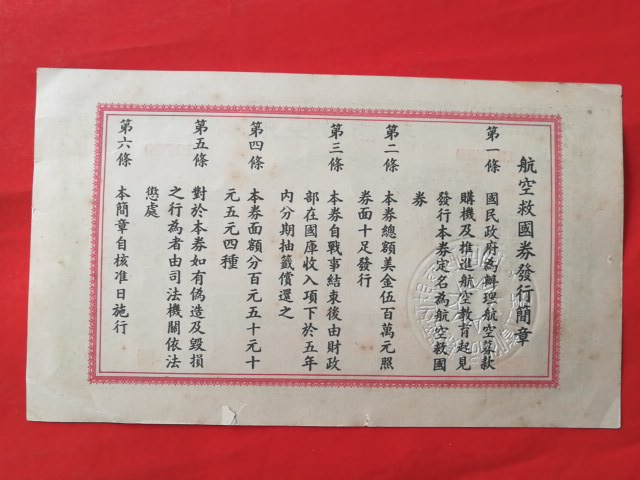 航空救國券發行簡章
第一條　國民政府為辦理航空募款
購機及推進航空教育起見
發行本券定名為航空救國
券
第二條　本券總額美金伍百萬元照
券面十足發行
第三條　本券自戰事結束後由財政
部在國庫收入項下於五年
內分期抽籤償還之
第四條　本券面額分百元五十元十
元五元四種
第五條　對於本券如有偽造及毀損
之行為者由司法機關依法
懲處
第六條　本簡章自核准日施行